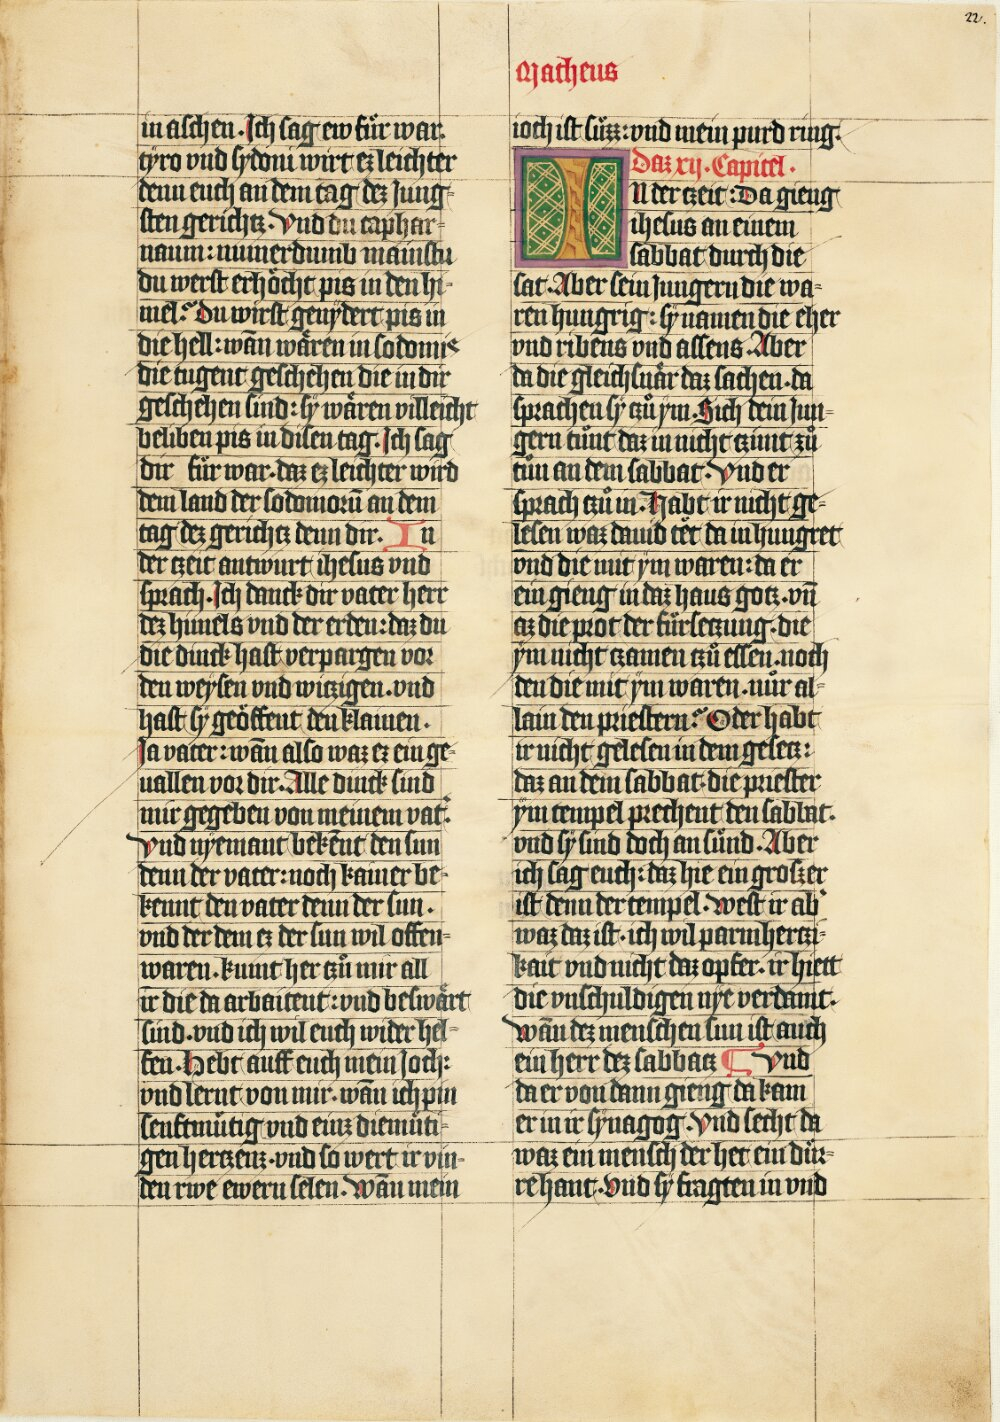 22.
Matheus
in aschen. Ich sag ew für war.
tÿro vnd sydoni wirt ez leichter
denn euch an dem tag dez Jung-
sten gerichtz. Vnd du caphar-
naum: nu
du werst erhöcht pis in den hi-
mel? Du wirst genydert pis in
die hell: wān wären in sodomis
die tugent geschehen die in dir
geschehen sind: sy wären villeicht
beliben pis in disen tag. Ich sag
dir für war. daz ez leichter wird
dem land der sodomorū an dem
tag dez gerichtz denn dir. In
der czeit antwurt ihesus vnd
sprach. Ich danck dir vater herr
dez himels vnd der erden: daz du
die dinck hast verpargen vor
den weysen vnd wiczigen. vnd
hast sy geöffent den klainen.
Ja vater: wān also waz ez ein ge-
uallen vor dir. Alle dinck sind
mir gegeben von meinem vat̄.
Vnd nyemant bekēnt den sun
denn der vater: noch kainer be-
kennt den vater denn der sun.
vnd der dem ez der sun wil offen-
waren. kumt her czů mir all
ir die da arbaitent: vnd beswärt
sind. vnd ich wil euch wider hel-
fen. Hebt auff euch mein Joch:
vnd lernt von mir. wān ich pin
senftmütig vnd einz diemüti-
gen herczenz. vnd so wert ir vin-
den rwe ewern selen. Wān mein
ioch ist süzz: vnd mein purd ring.
Daz xij. Capitel.
In der czeit: Da gieng
ihesus an einem
sabbat durch die
sat. Aber sein Jungern die wa-
ren hungrig: sy namen die eher
vnd ribens vnd assens. Aber
da die gleichsnär daz sachen. da
sprachen sy czů ym. Sich dein Jun-
gern tůnt daz in nicht czimt zů
tůn an dem sabbat. Vnd er
sprach czů in. Habt ir nicht ge-
lesen waz dauid tet da in hungret
vnd die mit ym waren: da er
ein gieng in daz haus gotz. vn̄
az die prot der fürseczung. die
ym nicht czamen czů essen. noch
den die mit ym waren. nůr al-
lain den priestern? Oder habt
ir nicht gelesen in dem gesecz:
daz an dem sabbat die priester
ym tempel prechent den sabbat.
vnd sy sind doch an sünd. Aber
ich sag euch: daz hie ein groszer
ist denn der tempel. West ir ab̄
waz daz ist. ich wil parmherczi-
kait vnd nicht daz opfer. ir hiett
die vnschuldigen nye verdamt.
Wān dez menschen sun ist auch
ein herr dez sabbatz ¶ Vnd
da er von dann gieng da kam
er in ir synagog. Vnd secht da
waz ein mensch der het ein dür-
re hant. Vnd sy fragten in vnd